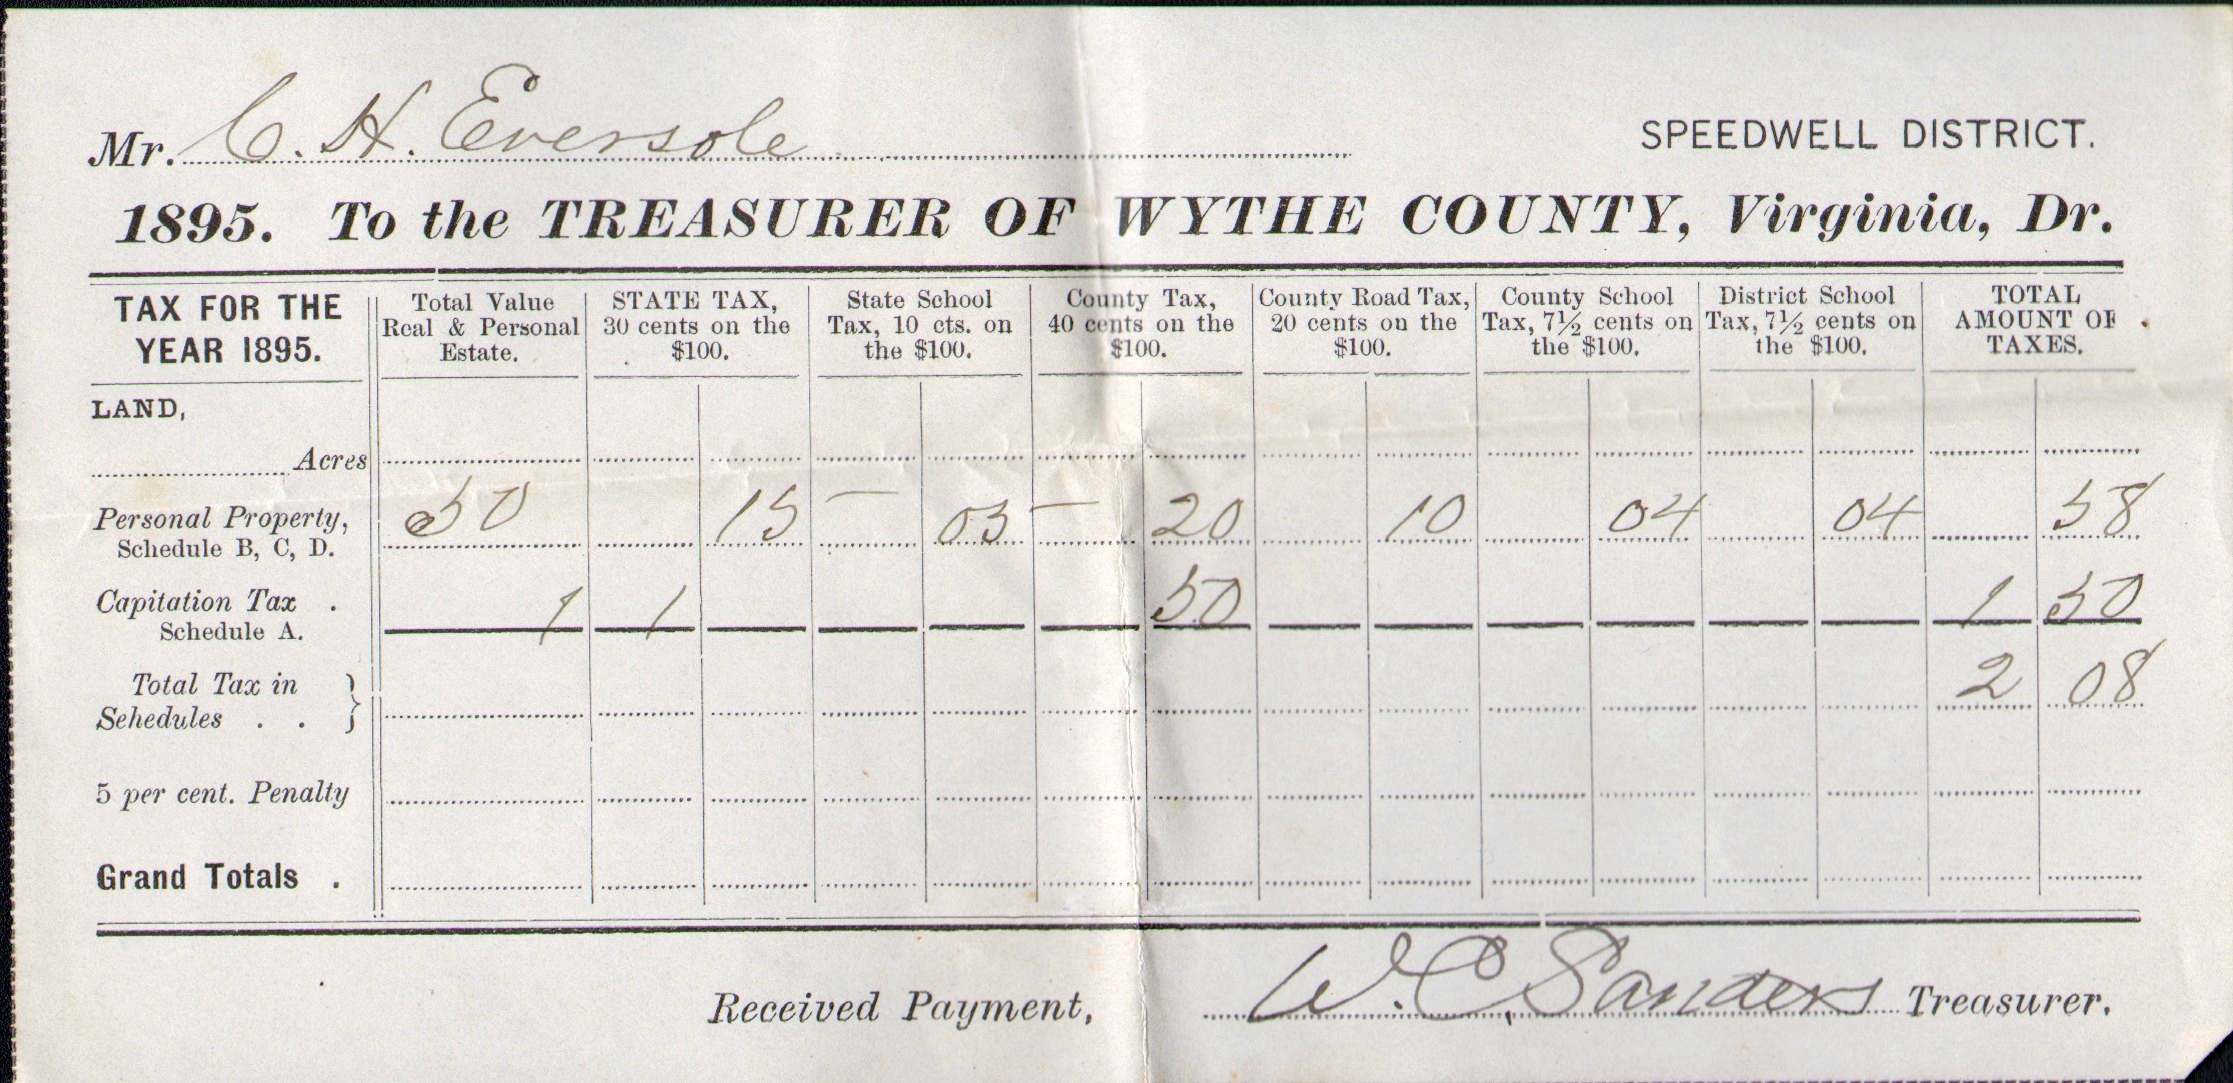 Mr. C. H. Eversole
SPEEDWELL DISTRICT.
1895. To the TREASURER OF WYTHE COUNTY, Virginia, Dr.
TAX FOR THE YEAR 1895. Total Value Real & Personal Estate. STATE TAX, 30 cents on the $100. State School Tax, 10 cts. on the $100. County Tax, 40 cents on the $100. County Road Tax, 20 cents on the $100. County School Tax, 7½ cents on the $100. District School Tax, 7½ cents on the $100. TOTAL AMOUNT OF TAXES.
LAND,
Acres
Personal Property, 50 15 — 05 — 20 10 04 04 58
Schedule B, C, D.
Capitation Tax . 1 1 50 1 50
Schedule A.
Total Tax in 2 08
Schedules . .
5 per cent. Penalty
Grand Totals .
Received Payment, W. C. Sanders Treasurer.